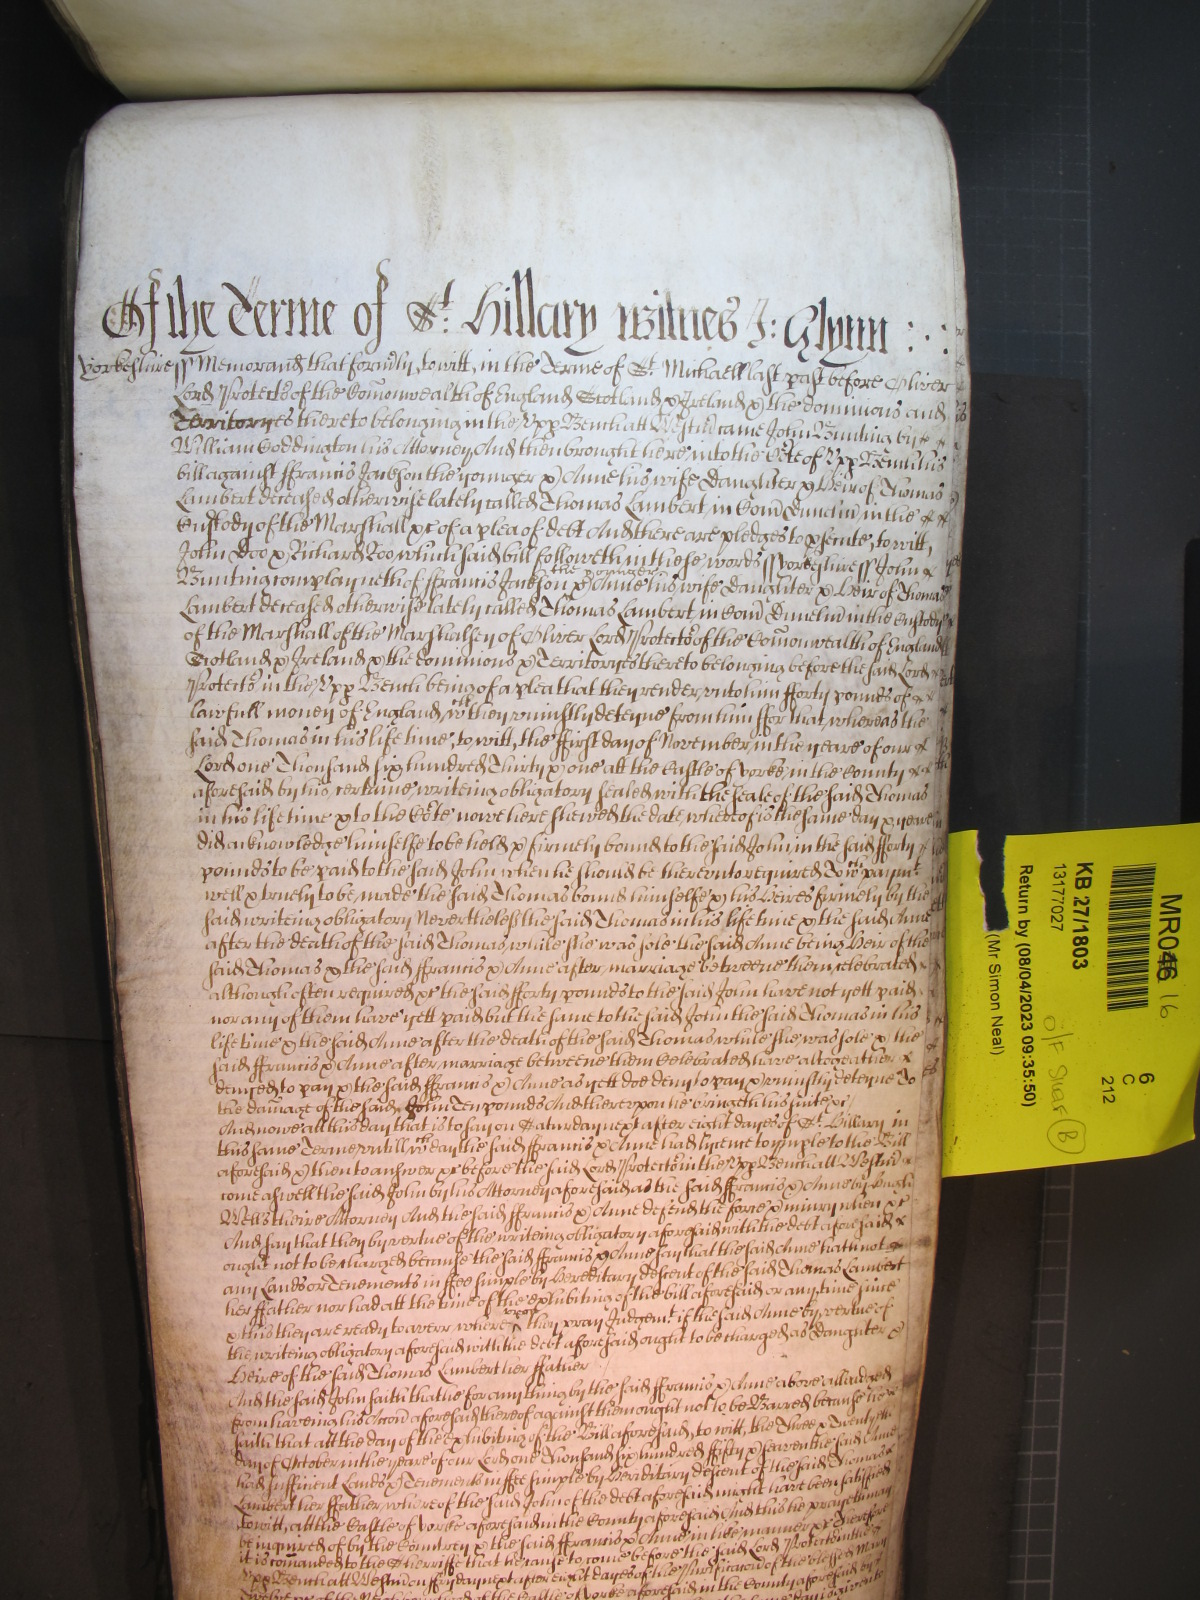 Of the Terme of St. Hillary witnes J: Glynn
Yorkeshire ss Memorand that formly, to witt, in the Terme of St. Michaell last past before Oliver
Lord Protector of the Comonwealth of England Scotland & Ireland & the dominions and
Territoryes thereto belonging in the Upp Bench att Westm came John Bunting by
William Coddington his Attorney And then brought here into the Cort of Upp Bench his
bill against ffrancis Jackson the younger & Anne his wife Daughter & Heir of Thomas
Lambert deceased otherwise lately called Thomas Lambert in Com Dunelm in the
Custody of the Marshall &c of a plea of debt And there are pledges to psecute, to witt,
John Doo & Richard Roo which said bill followeth in these words ss Yorkeshire ss John
Bunting complayneth of ffrancis Jackson the younger & Anne his wife Daughter & Heir of Thomas
Lambert deceased otherwise lately called Thomas Lambert in Com Dunelm in the Custody
of the Marshall of the Marshalsey of Oliver Lord Protector of the Comonwealth of England
Scotland & Ireland & the dominions & Territoryes thereto belonging before the said Lord
Protector in the Upp Bench being of a plea that they render unto him fforty pounds of
lawfull money of England wch they uniustly deteyne from him ffor that, whereas the
said Thomas in his life time, to witt, the ffirst day of November in the yeare of our
Lord one Thousand six hundred Thirty & one att the Castle of Yorke in the County
aforesaid by his certaine writeing obligatory sealed with the seale of the said Thomas
in his life time & to the Corte nowe here shewed the date whereof is the same day & yeare
did acknowledge himselfe to be held & firmely bound to the said John in the said fforty
pounds to be paid to the said John when he should be thereunto required To wch paymt
well & truely to be made the said Thomas bound himselfe & his Heires firmely by the
said writeing obligatory Neverthelesse the said Thomas in his life time & the said Anne
after the death of the said Thomas while she was sole the said Anne being Heir of the
said Thomas & the said ffrancis & Anne after marriage betweene them celebrated
although often required &c the said fforty pounds to the said John have not yett paid
nor any of them have yett paid but the same to the said John the said Thomas in his
life time & the said Anne after the death of the said Thomas while she was sole & the
said ffrancis & Anne after marriage betweene them Celebrated have altogeather
denyed to pay & the said ffrancis & Anne as yett doe deny to pay & uniustly deteyne To
the damage of the said John Ten pounds And thereupon he bringeth his suite &c
And nowe att this day that is to say on Saturday next after eight dayes of St. Hillary in
this same Terme untill wch day the said ffrancis & Anne had lycence to imple to the Bill
aforesaid & then to answer &c before the said Lord Protector in the Upp Bench att Westm
come aswell the said John by his Attorney aforesaid as the said ffrancis & Anne by Hugh
Wells theire Attorney And the said ffrancis & Anne defend the force & iniury when &c
And say that they by vertue of the writeing obligatory aforesaid with the debt aforesaid
ought not to be charged because the said ffrancis & Anne say that the said Anne hath not
any Lands or Tenements in ffee simple by Hereditary descent of the said Thomas Lambert
her ffather nor had att the time of the exhibiting of the bill aforesaid or any time since
& this they are ready to averr, whereupon they pray Judgemt if the said Anne by vertue of
the writeing obligatory aforesaid with the debt aforesaid ought to be charged as Daughter &
Heire of the said Thomas Lambert her ffather
And the said John saith that he for any thing by the said ffrancis & Anne above alleadged
from haveing his Accon aforesaid thereof against them ought not to be Barred because he
saith that att the day of the Exhibiting of the Bill aforesaid, to witt, the Three & Twentyth
day of October in the yeare of our Lord one Thousand six hundred ffifty & seaven the said Anne
had sufficient Lands & Tenements in ffee simple by Hereditary descent of the said Thomas
Lambert her ffather, whereof the said John of the debt aforesaid might have been satisfied
to witt, att the Castle of Yorke aforesaid in the County aforesaid And this he prayeth may
be inquired of by the Countrey & the said ffrancis & Anne in like manner &c Therefore
it is comanded to the Sherriffe that he cause to come before the said Lord Protector in the
Upp Bench att Westm on ffryday next after eight dayes of the Purification of the blessed Mary
Twelve &c of the
MR046 16
KB 27/1803
13177027
Return by (08/04/2023 09:35:50)
(Mr Simon Neal)
6
C
212
O/F Shelf B